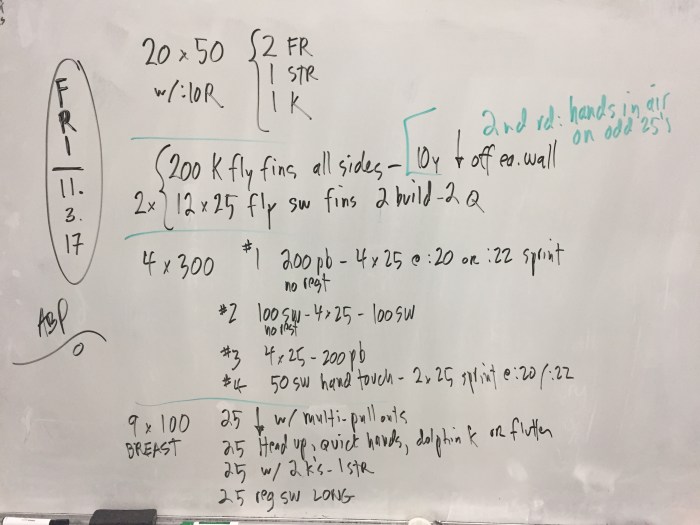 FRI
11.
3.
17
ABP
20 x 50 2 FR
w/:10R 1 STR
1 K
2nd rd: hands in air
on odd 25's
200 K fly fins all sides - 10y ↓ off ea. wall
2x 12 x 25 fly sw fins 2 build - 2 Q
4 x 300 #1 200 pb - 4 x 25 @ :20 or :22 sprint
no rest
#2 100 sw - 4 x 25 - 100 sw
no rest
#3 4 x 25 - 200 pb
#4 50 sw hand touch - 2 x 25 sprint @ :20/:22
9 x 100 25 ↓ w/ multi-pullouts
BREAST 25 Head up, quick hands, dolphin k or flutter
25 w/ 2 k's - 1 STR
25 reg sw LONG